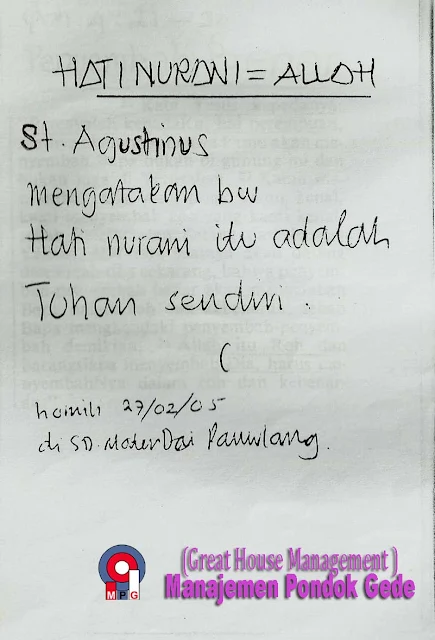 HATI NURANI = ALLOH
St. Agustinus
mengatakan bw
Hati nurani itu adalah
Tuhan sendiri .
(
homili 27/02/05
di SD. Mater Dai Pamulang.
MPG
(Great House Management )
Manajemen Pondok Gede